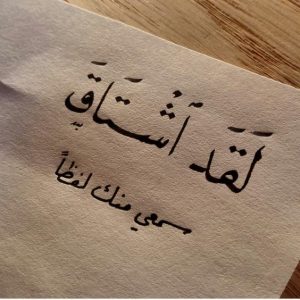 لَقَد أَشْتَاقَ
سمعي منك لفظاً